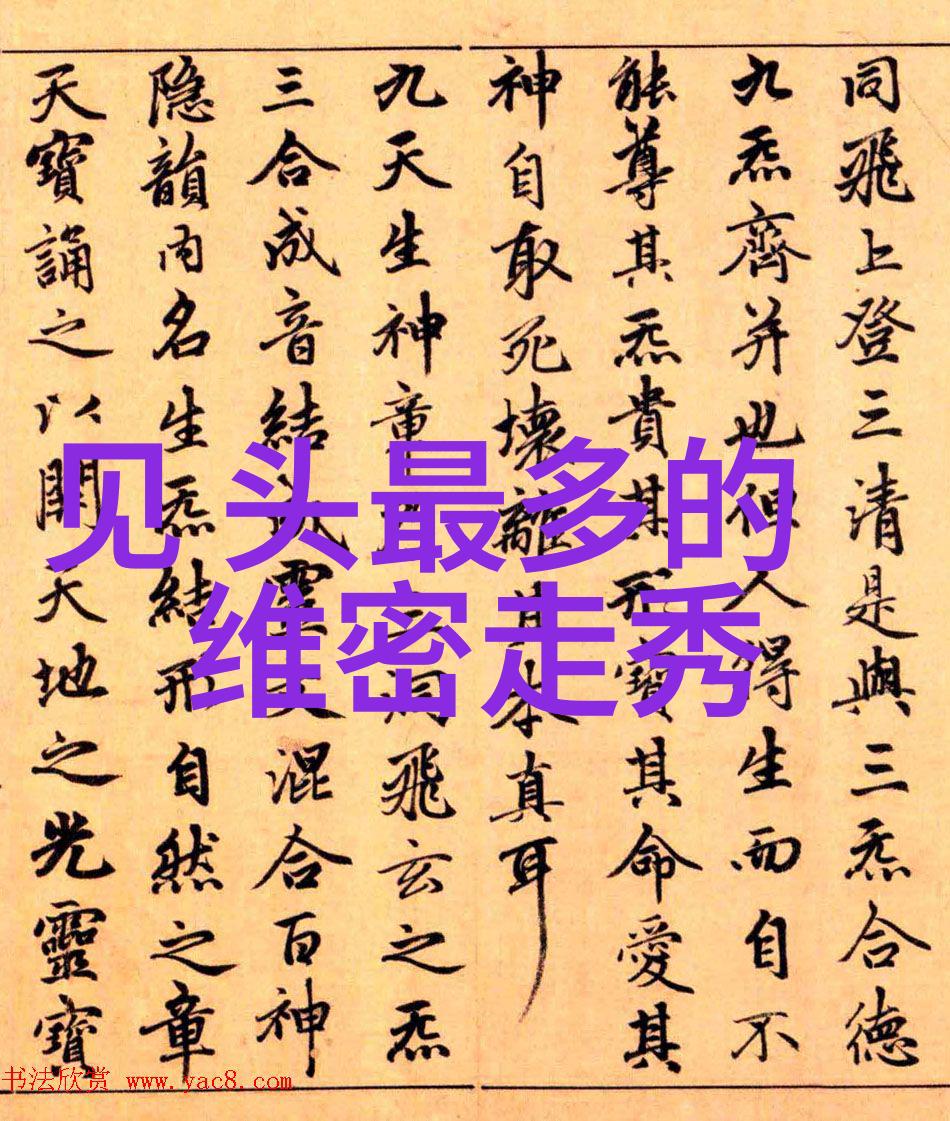 同飛上登三清是與三炁合德
九炁齊并也但人得生而自不
能尊其炁貴其形寶其命愛其
神自取死壞離其本真耳
九天生神章三洞飛玄之炁
三合成音結成靈文混合百神
隐韻内名生炁結形自然之章
天寶誦之以開天地之光靈寶
见 头最多的
维密走秀
书法欣赏 www.yac8.com